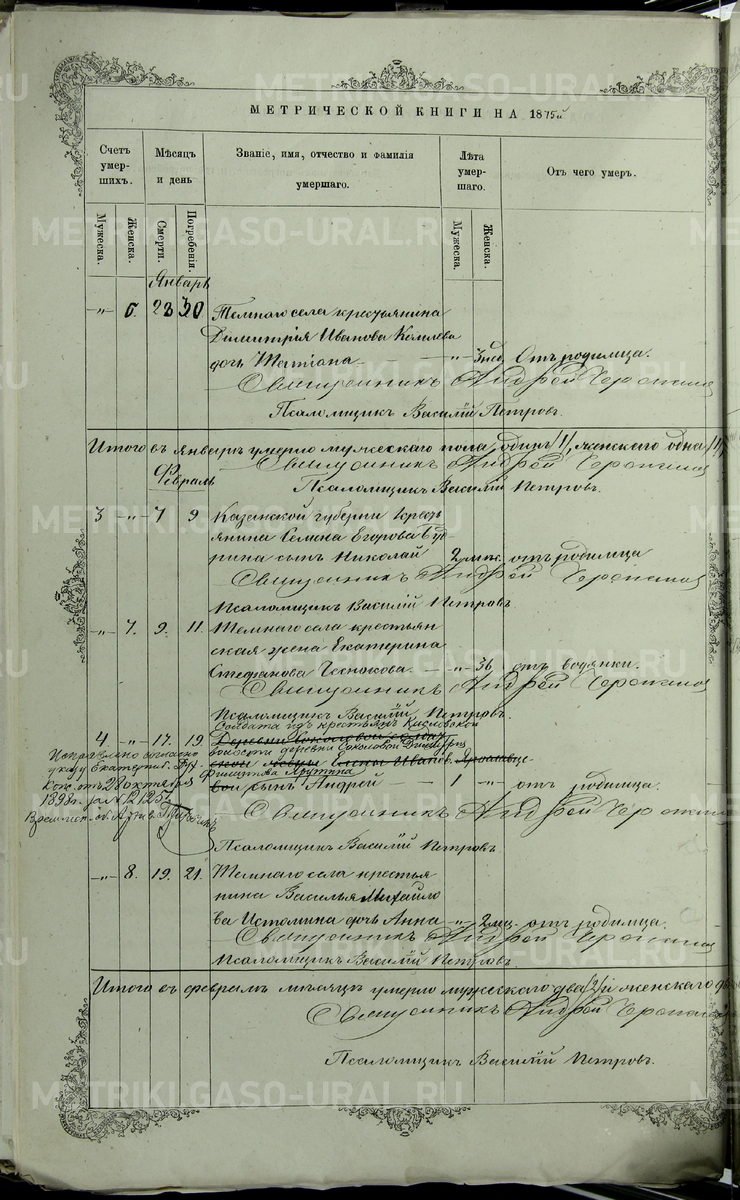 МЕТРИЧЕСКОЙ КНИГИ НА 1875й
Счетъ умер-шихъ.
Мѣсяцъ и день
Званіе, имя, отчество и фамилія умершаго.
Лѣта умер-шаго.
Отъ чего умеръ.
Мужеска.
Женска.
Смерти.
Погребенія.
Мужеска.
Женска.
Январь
„ 6. 28 30 Темнаго села крестьянина
Димитрія Иванова
дочь Татіана — „ Отъ родимца.
Священникъ Андрей
Псаломщикъ Василій Петровъ.
Итого въ январѣ умерло мужескаго пола одинъ /1/, женскаго одна /1/
Священникъ Андрей
Февраль
Псаломщикъ Василій Петровъ.
3 „ 7 9 Казанской губерніи кресть
янина Егорова
сынъ Николай 2 отъ родимца
Священникъ Андрей
Псаломщикъ Василій Петровъ.
„ 7. 9. 11. Темнаго села крестьян
ская жена Екатерина
Стефанова Чеснокова. — „ 36 отъ водянки.
Священникъ Андрей
Псаломщикъ Василій Петровъ.
Солдата изъ крестьянъ Кисловской
4 „ 17. 19. Деревни
волости деревни Соколовой
Исправлено согласно
указу Екатеринб. Ду
Филиппова
сынъ Андрей — 1 „ отъ родимца.
Конс. отъ 28 октября
1898г. за № 12125
Священникъ Андрей
Псаломщикъ Василій Петровъ
„ 8. 19. 21. Темнаго села крестья
нина Василья Михайло
ва Истомина дочь Анна „ 2 мц. отъ родимца.
Священникъ Андрей
Псаломщикъ Василій Петровъ
Итого въ февралѣ мѣсяцѣ умерло мужескаго два /2/ и женскаго
Священникъ Андрей
Псаломщикъ Василій Петровъ.
METRIKI.GASO-URAL.RU